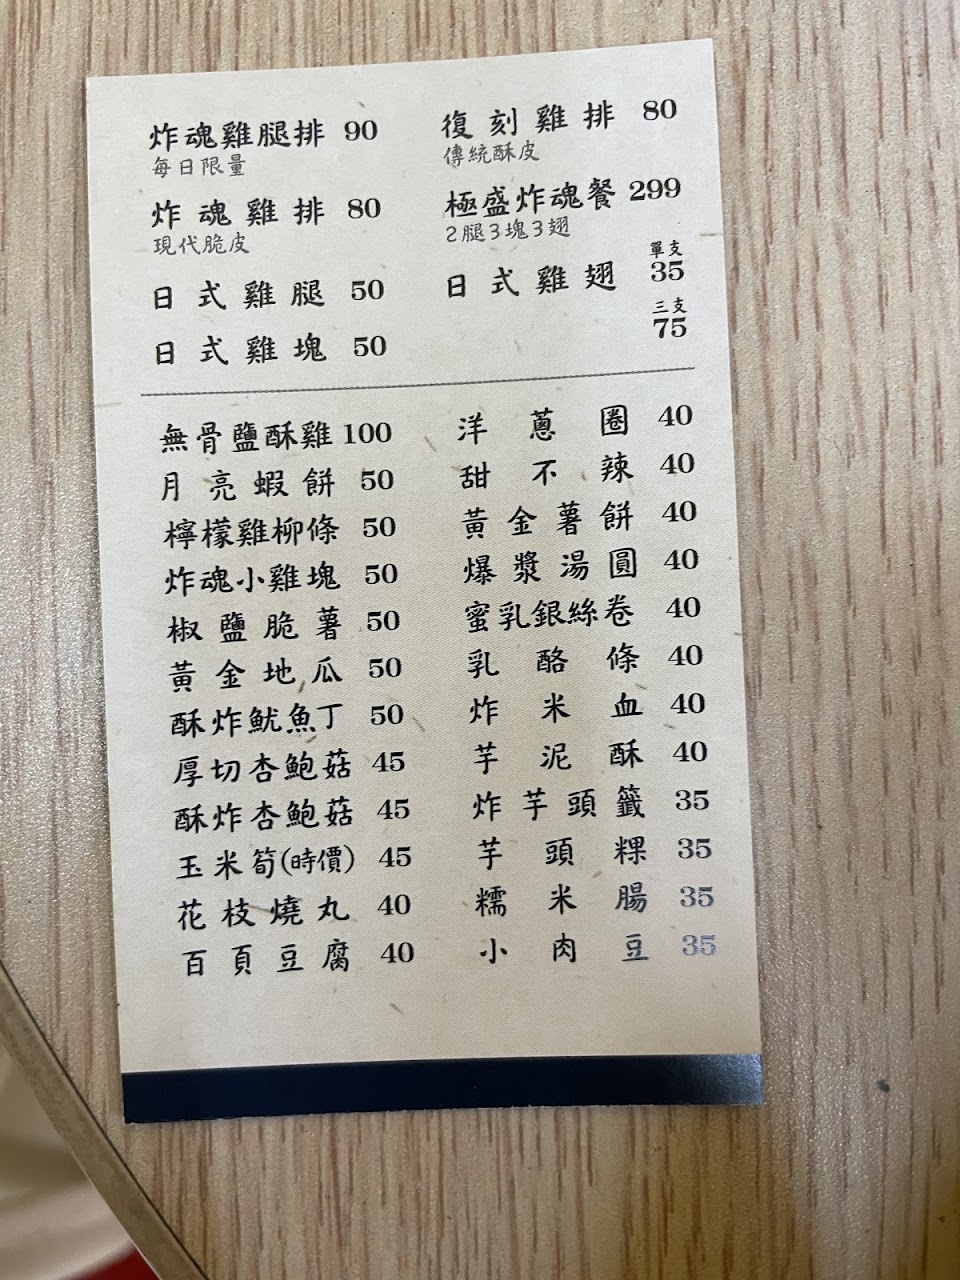 炸魂雞腿排 90
每日限量
炸魂雞排 80
現代脆皮
日式雞腿 50
日式雞塊 50
復刻雞排 80
傳統酥皮
極盛炸魂餐 299
2腿3塊3翅
單支
日式雞翅 35
三支
75
無骨鹽酥雞 100
月亮蝦餅 50
檸檬雞柳條 50
炸魂小雞塊 50
椒鹽脆薯 50
黃金地瓜 50
酥炸魷魚丁 50
厚切杏鮑菇 45
酥炸杏鮑菇 45
玉米筍(時價) 45
花枝燒丸 40
百頁豆腐 40
洋蔥圈 40
甜不辣 40
黃金薯餅 40
爆漿湯圓 40
蜜乳銀絲卷 40
乳酪條 40
炸米血 40
芋泥酥 40
炸芋頭籤 35
芋頭粿 35
糯米腸 35
小肉豆 35